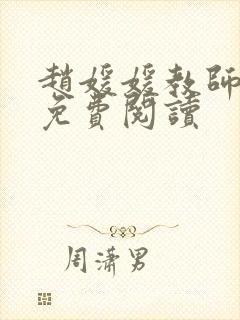 趙媛媛教師
免費閱讀
周瀟男